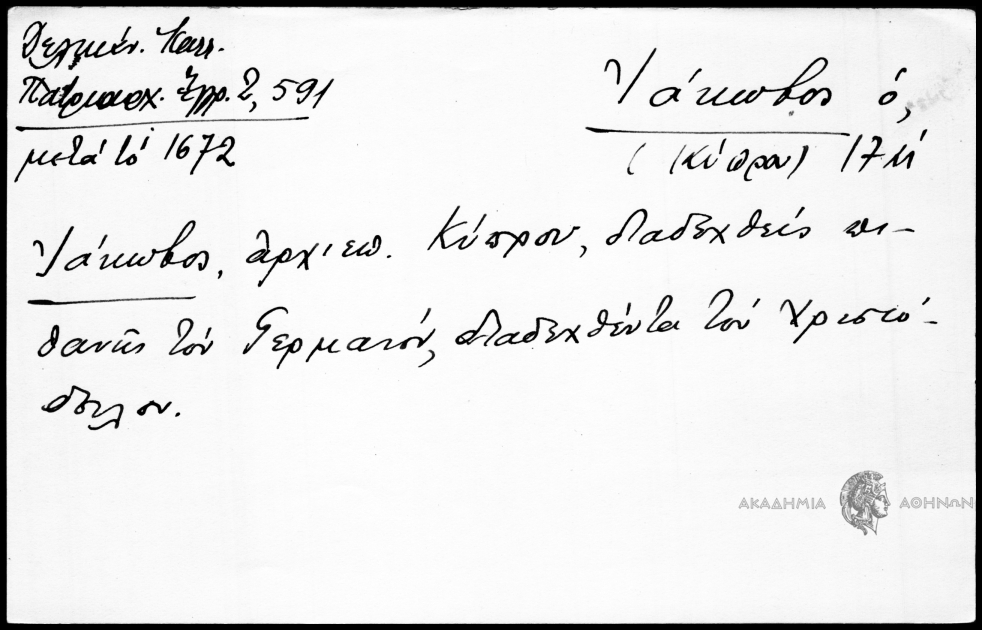 Δελικάν. Καλλ.
Πατριαρχ. Ἔγγρ. 2, 591
μετά τό 1672
Ἰάκωβος ὁ,
(Κύπρου) 17 μ
Ἰάκωβος, ἀρχιεπ. Κύπρου, διαδεχθείς πι-
θανῶς τόν Γερμανόν, διαδεχθέντα τόν Χριστό-
δουλον.
ΑΚΑΔΗΜΙΑ ΑΘΗΝΩΝ